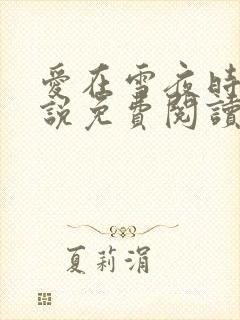 愛在雪夜時
說免費閱讀
夏莉涓